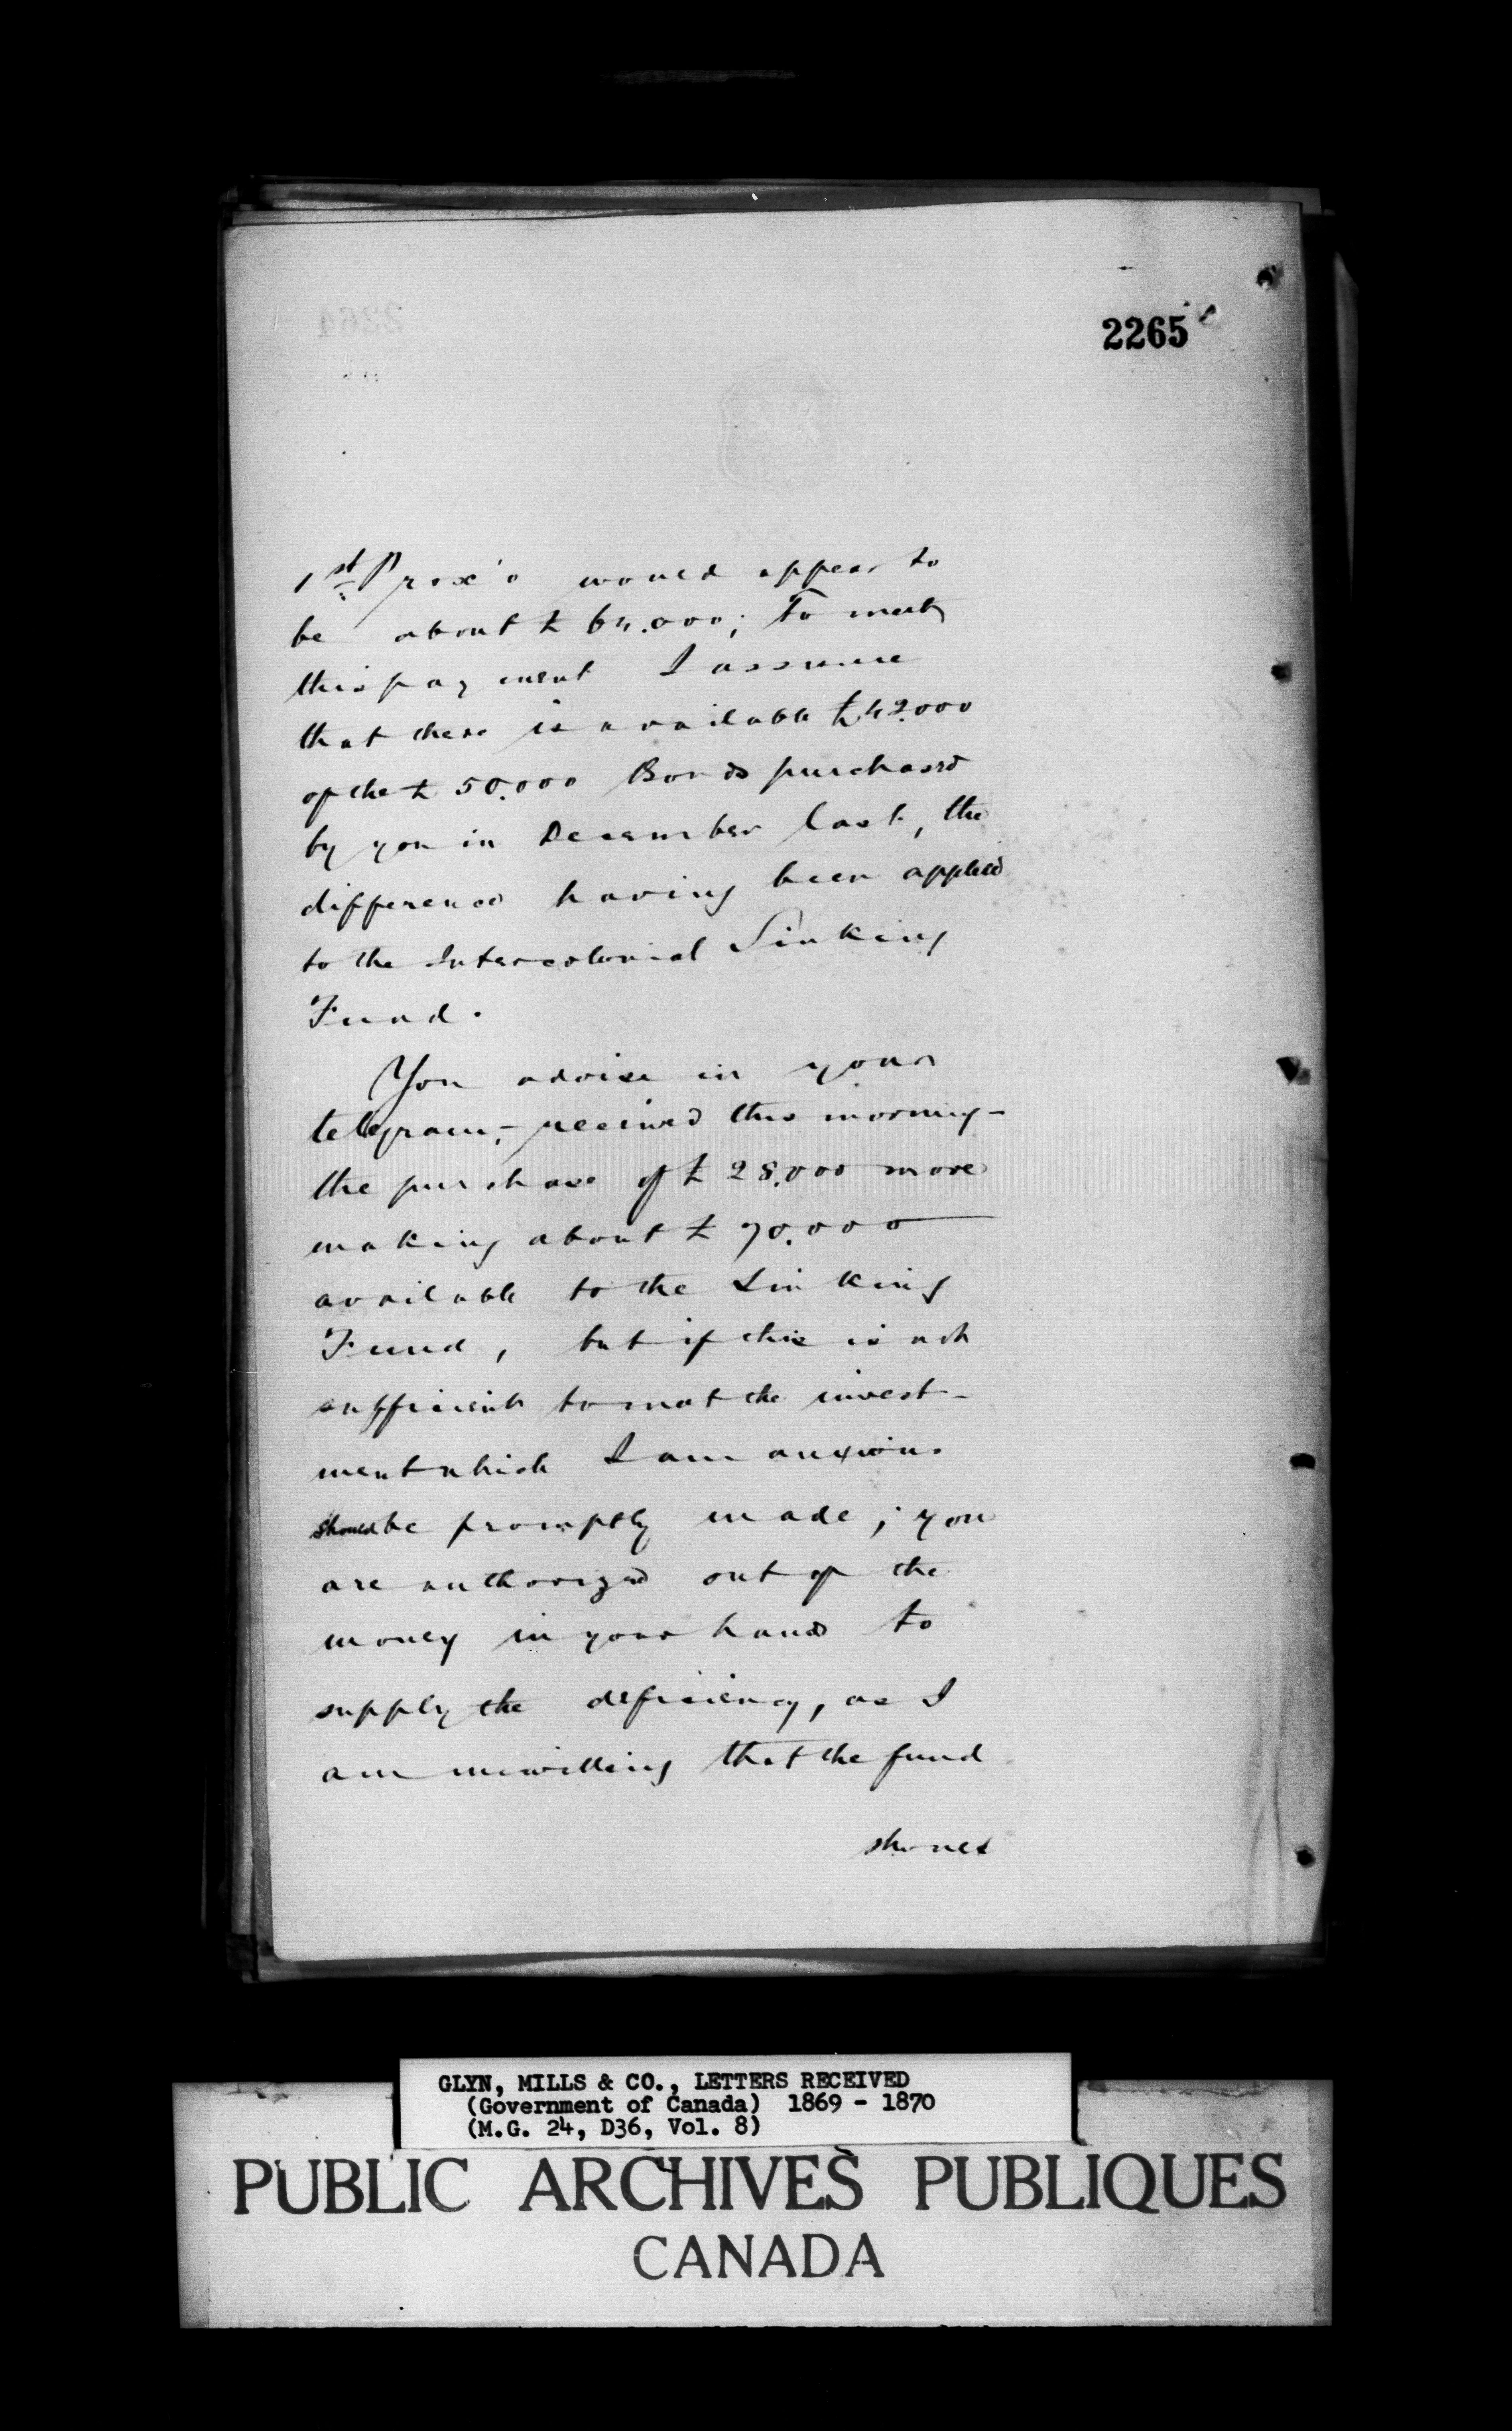 2265
1st Prox'o would appear to
be about £ 64.000; To meet
this payment I assume
that there is available £42.000
of the £ 50.000 Bonds purchased
by you in December last, the
difference having been applied
to the Intercolonial Sinking
Fund.
You advise in your
telegram,- received this morning-
the purchase of £ 28.000 more
making about £ 70.000
available to the Sinking
Fund, but if this is not
sufficient to meet the invest-
ment which I am anxious
should be promptly made; you
are authorized out of the
money in your hands to
supply the deficiency, as I
am unwilling that the fund
should
GLYN, MILLS & CO., LETTERS RECEIVED
(Government of Canada) 1869 - 1870
(M.G. 24, D36, Vol. 8)
PUBLIC ARCHIVES PUBLIQUES
CANADA